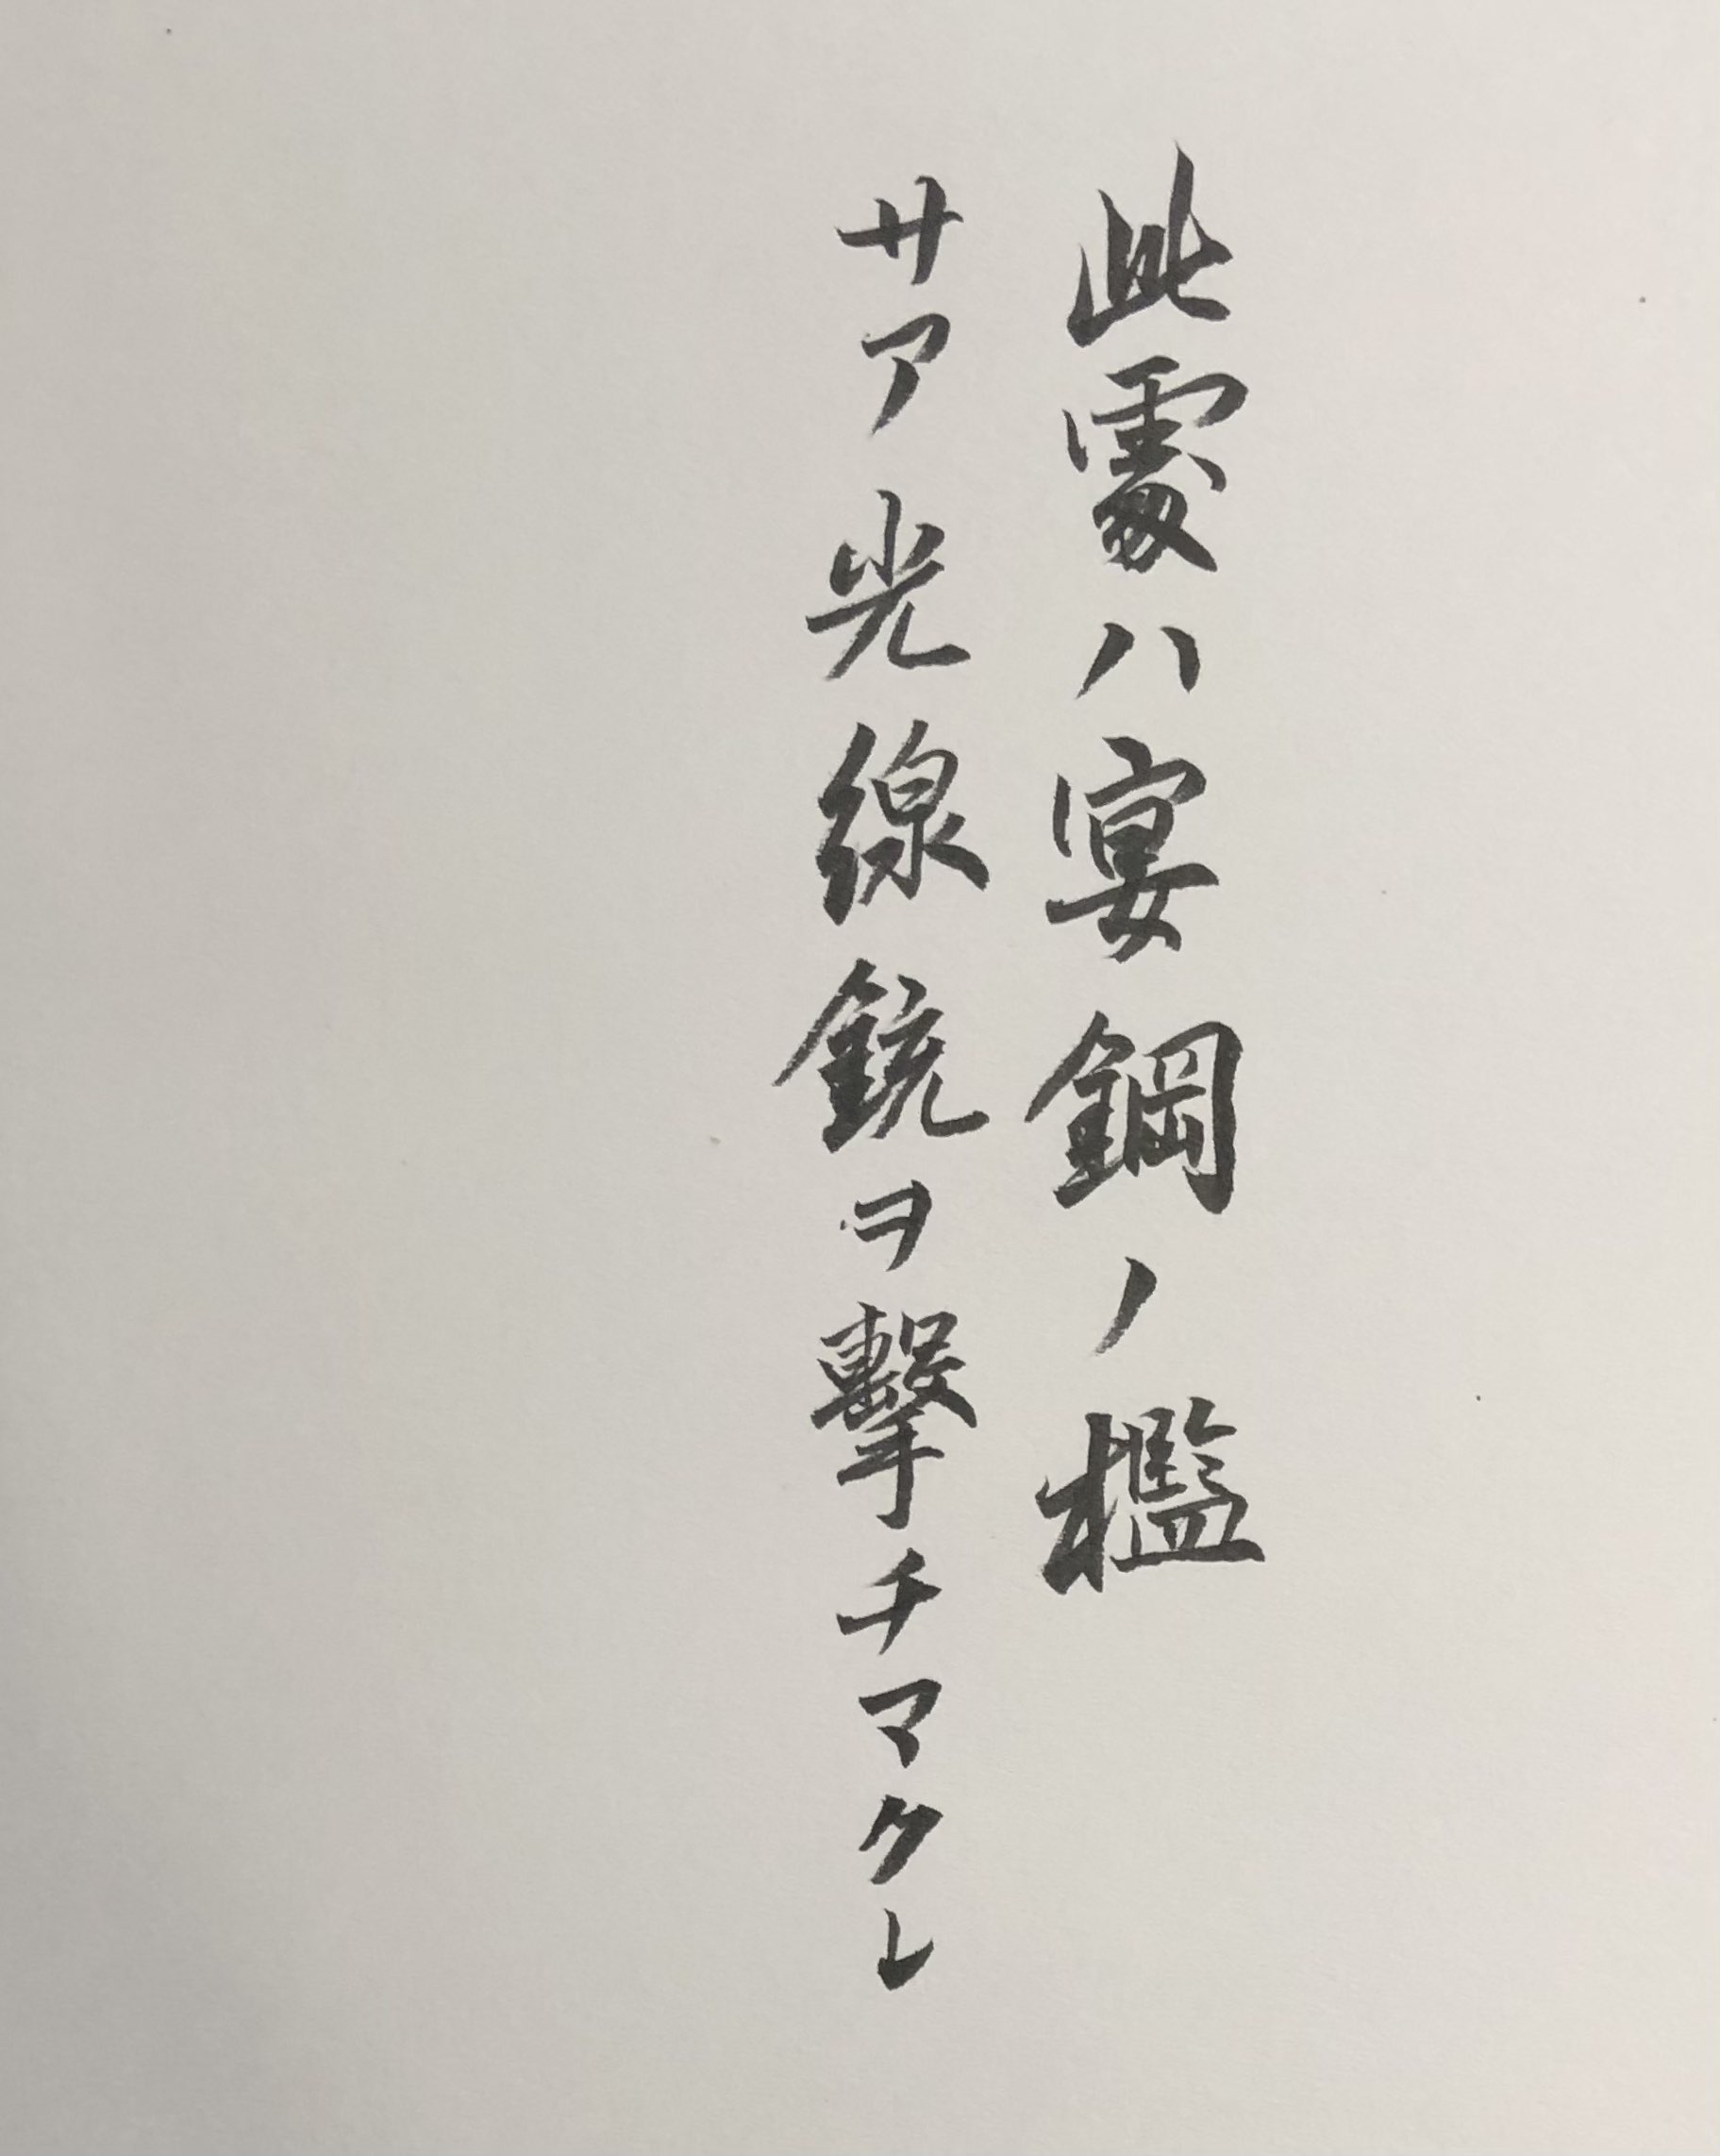 此處ハ宴鋼ノ檻
サア光線銃ヲ撃チマクレ